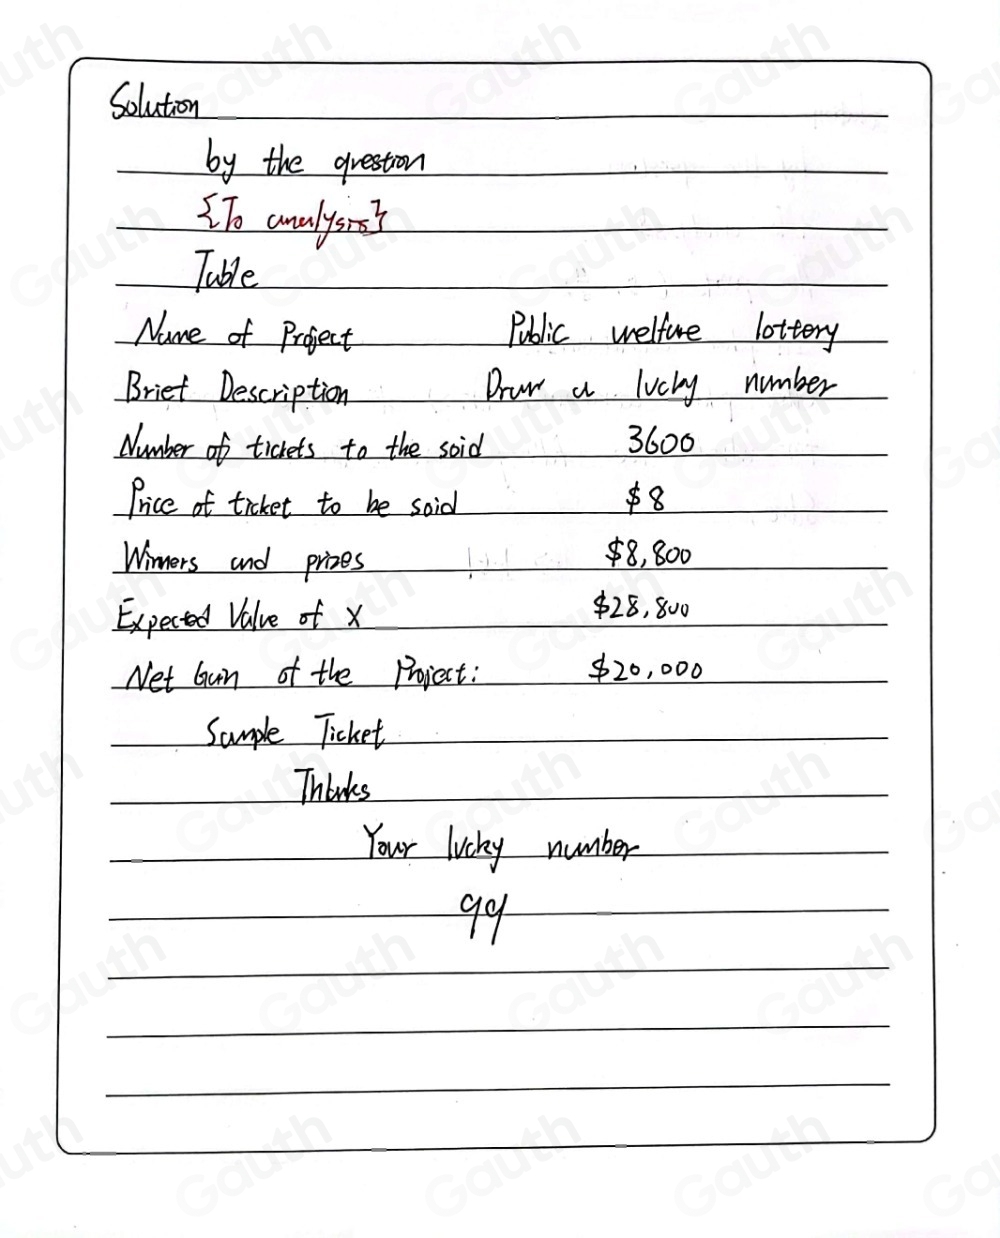 Solution
by the question
{To analysis}
Table
Name of Project Public welfare lottery
Brief Description Draw a lucky number
Number of tickets to the soid 3600
Price of ticket to be soid $8
Winners and prizes $8,800
Expected Value of X $28,800
Net Gain of the Project: $20,000
Sample Ticket
Thanks
Your lucky number
99